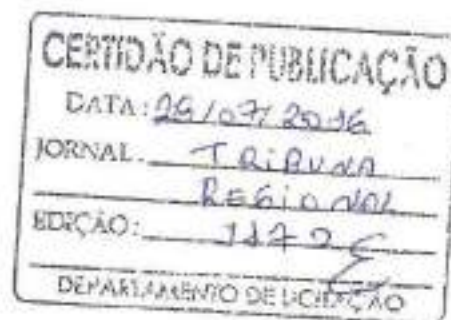 CERTIDÃO DE PUBLICAÇÃO
DATA: 29/07/2016
JORNAL: TRIBUNA
REGIONAL
EDIÇÃO:
DEPARTAMENTO DE LICITAÇÃO